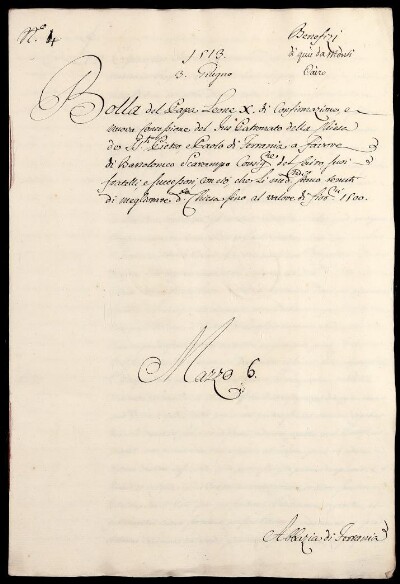 N.º 4
Benefizi
di quà da Monti
Cairo
1513.
3. Giugno
Bolla del Papa Leone X. di Confirmazione, e
nuova concessione del Jus Patronato della Chiesa
de SS.ti Pietro e Paolo di Ferrania a favore
di Bartolomeo Scarampo Consig.re del suoi
fratelli, e successori, con ciò che li med.mi siano tenuti
di megliorare d.a Chiesa sino al valore di fior.ni 1500.
Mazzo 6.
Abbazia di Ferrania